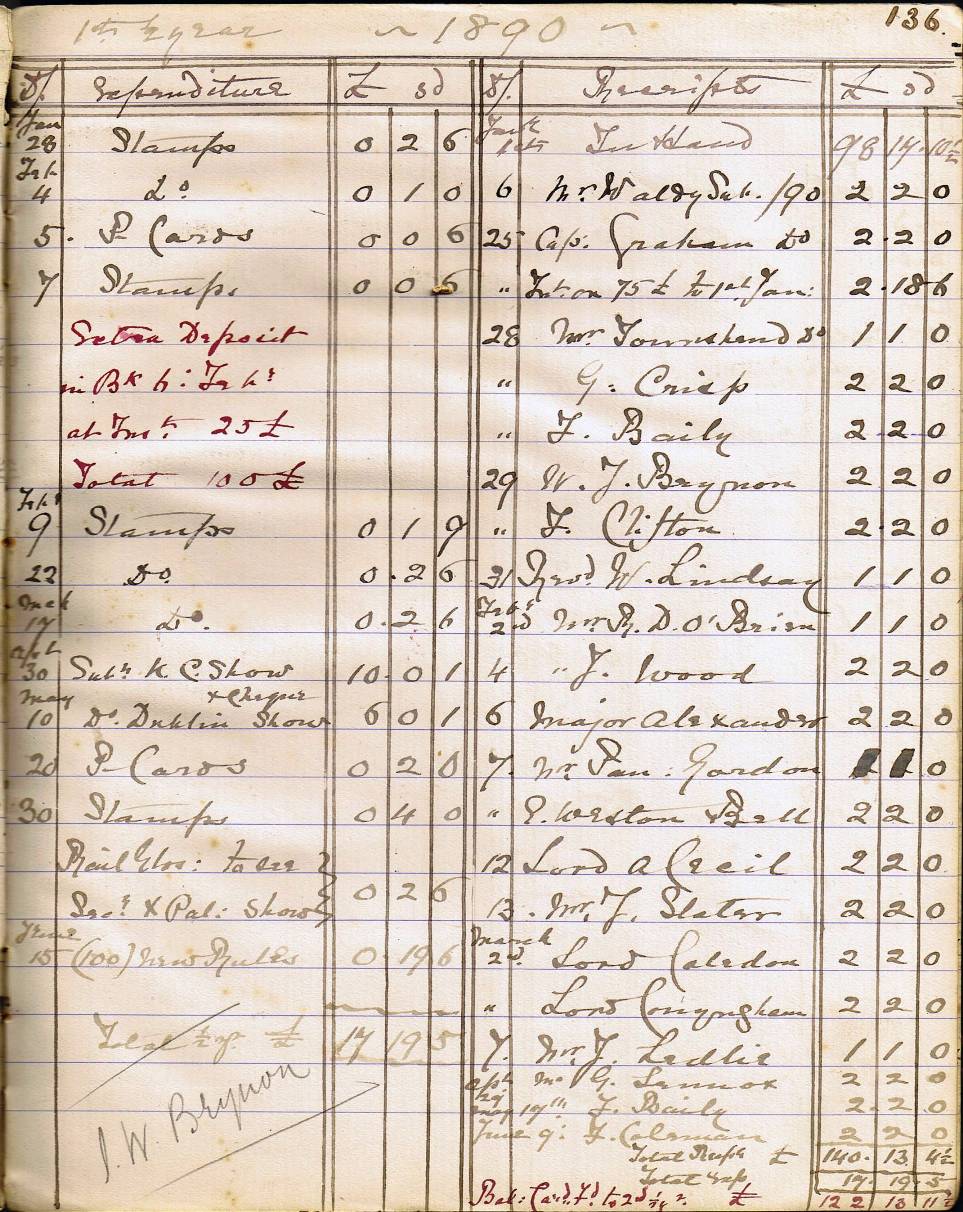 136.
1st ½ year ~ 1890 ~
Dt. Expenditure £ s d
Jan 28 Stamps 0 2 6
Feb 4 Do. 0 1 0
5. P Cards 0 0 6
7 Stamps 0 0 6
Extra Deposit
in Bk 6: Febr
at Inst. 25£
Total 100£
Febr 9 Stamps 0 1 9
22 Do. 0. 2 6
Mch 17 Do. 0. 2 6
Apl 30 Subn K. C. Show 10. 0 1
& Cheque
May 10 Do. Dublin Show 6 0 1
20 P Cards 0 2 0
30 Stamps 0 4 0
to see } 0 2 6
X Pal: Show }
June 15 (100) New Rules 0. 19 6
Total ½ yr. £ 17 19 5
J. W. Brynon
Dt. Receipts £ s d
1st In Hand 98 14. 10½
6 Mr. Waldy Sub. /90 2 2 0
25 Cap: Graham Do 2. 2 0
" Int: on 75£ to 1st Jan: 2. 18 6
28 Mr. Townshend Do 1 1 0
" G: Crisp 2 2 0
" F. Baily 2. 2. 0
29 W. J. Brynon 2 2 0
" F. Clifton 2. 2 0
31 Revd. W. Lindsay 1 1 0
Febr 2nd Mr R. D. O'Brien 1 1 0
4 " J. Wood 2 2 0
6 Major Alexander 2 2 0
7. Mr Pan: Gordon 1 1 0
" E. Weston Bell 2 2 0
12 Lord A Cecil 2 2 0
13. Mr. J. Slater 2 2 0
March 2nd. Lord Caledon 2 2 0
" Lord Conyngham 2 2 0
7. Mr. J. Ledlie 1 1 0
Apl 29 Mr G. Lennox 2 2 0
May 17th F. Baily 2. 2 0
June 9: F. Coleman 2 2 0
Total Recpts £ 140. 13. 4½
Total Exp 17. 19. 5
Bal: Card. Fd. to 2nd ½ yr. £ 122 13 11½